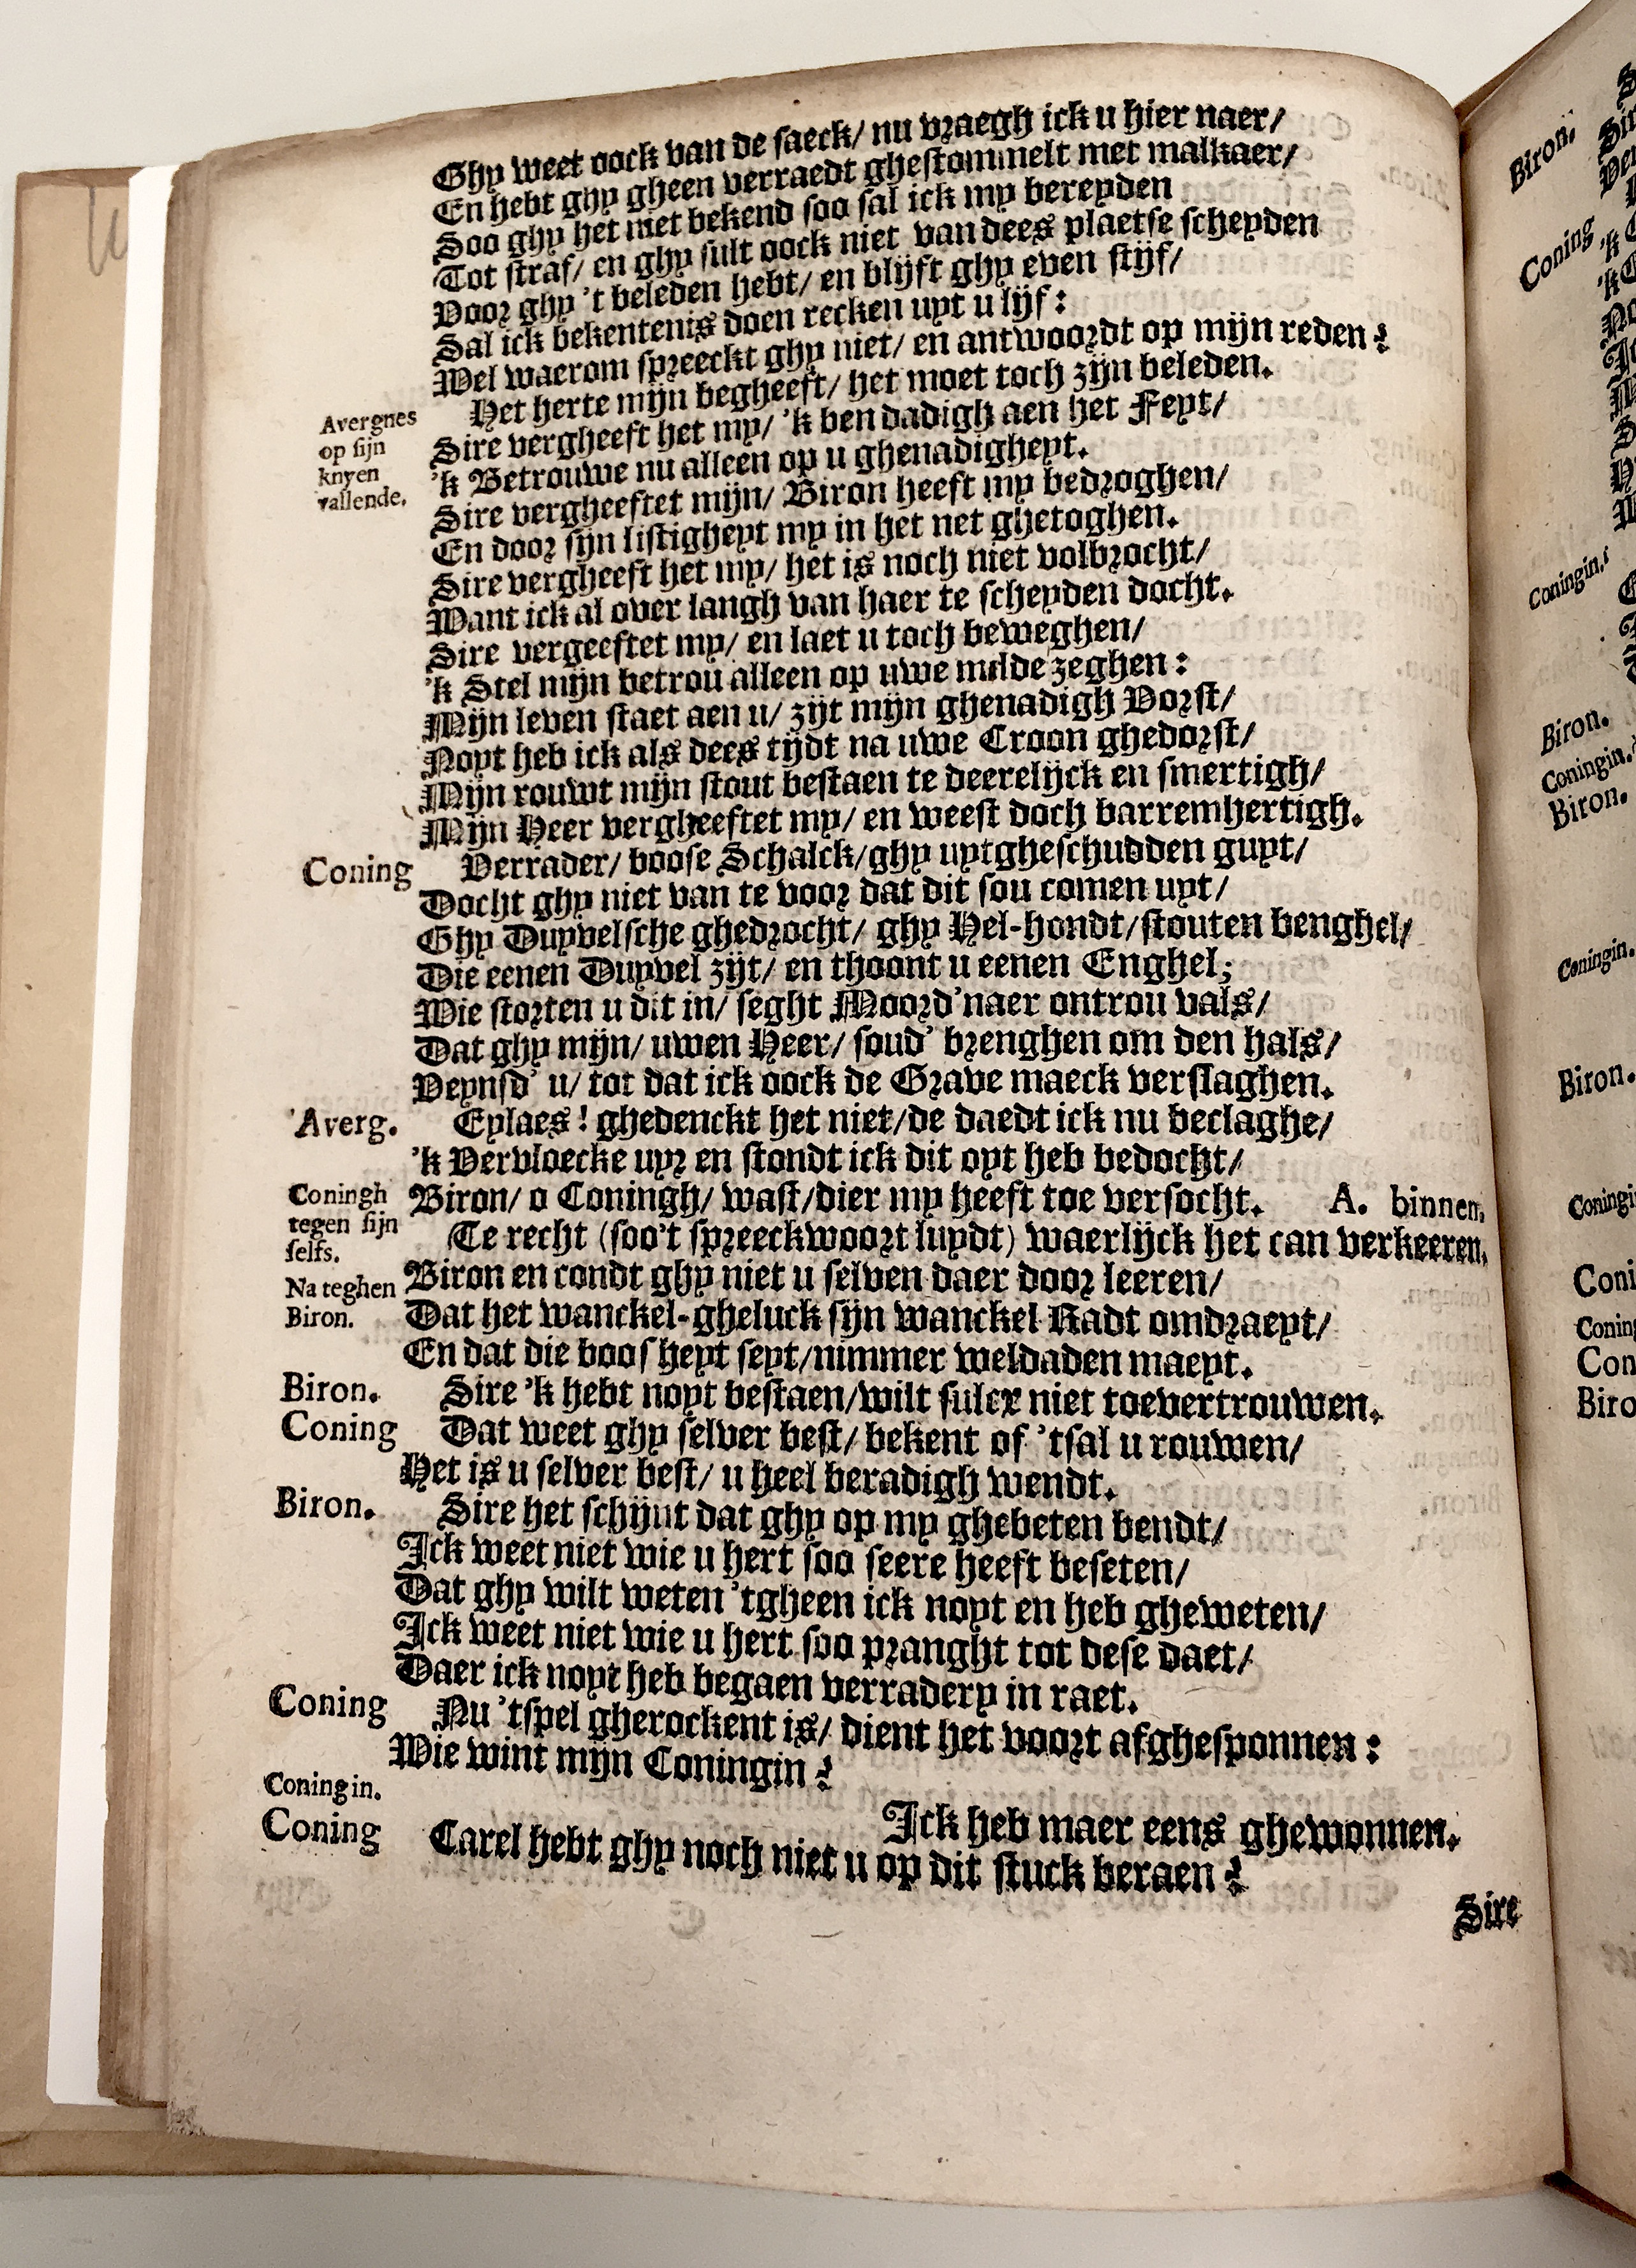 Ghy weet oock van de saeck/ nu vraegh ick u hier naer/
En hebt ghy gheen verraedt ghestommelt met malkaer/
Soo ghy het niet bekend soo sal ick my bereyden
Tot straf/ en ghy sult oock niet van dees plaetse scheyden
Voor ghy 't beleden hebt/ en blijft ghy even stijf/
Sal ick bekentenis doen recken uyt u lijf:
Wel waerom spreeckt ghy niet/ en antwoordt op mijn reden?
Avergnes op sijn knyen vallende.
Het herte mijn begheeft/ het moet toch zijn beleden.
Sire vergheeft het my/ 'k ben dadigh aen het Feyt/
'k Betrouwe nu alleen op u ghenadigheyt.
Sire vergheeftet mijn/ Biron heeft my bedroghen/
En door sijn listigheyt my in het net ghetoghen.
Sire vergheeft het my/ het is noch niet volbrocht/
Want ick al over langh van haer te scheyden docht.
Sire vergeeftet my/ en laet u toch beweghen/
'k Stel mijn betrou alleen op uwe milde zeghen:
Mijn leven staet aen u/ zijt mijn ghenadigh Vorst/
Noyt heb ick als dees tijdt na uwe Croon ghedorst/
Mijn rouwt mijn stout bestaen te deerelijck en smertigh/
Mijn Heer vergheeftet my/ en weest doch barremhertigh.
Coning Verrader/ boose Schalck/ ghy uytgheschudden guyt/
Docht ghy niet van te voor dat dit sou comen uyt/
Ghy Duyvelsche ghedrocht/ ghy Hel-hondt/ stouten benghel/
Die eenen Duyvel zijt/ en thoont u eenen Enghel;
Wie storten u dit in/ seght Moord'naer ontrou vals/
Dat ghy mijn/ uwen Heer/ soud' brenghen om den hals/
Veynsd' u/ tot dat ick oock de Grave maeck verslaghen.
Averg. Eylaes! ghedenckt het niet/ de daedt ick nu beclaghe/
'k Vervloecke uyr en stondt ick dit oyt heb bedocht/
Biron/ o Coningh/ wast/ dier my heeft toe versocht. A. binnen.
Coningh tegen sijn selfs.
Te recht (soo't spreeckwoort luydt) waerlijck het can verkeeren.
Na teghen Biron.
Biron en condt ghy niet u selven daer door leeren/
Dat het wanckel-gheluck sijn wanckel Radt omdraeyt/
En dat die boosheyt seyt/ nimmer weldaden maeyt.
Biron. Sire 'k hebt noyt bestaen/ wilt sulcx niet toevertrouwen.
Coning Dat weet ghy selver best/ bekent of 'tsal u rouwen/
Het is u selver best/ u heel beradigh wendt.
Biron. Sire het schijnt dat ghy op my ghebeten bendt/
Ick weet niet wie u hert soo seere heeft beseten/
Dat ghy wilt weten 'tgheen ick noyt en heb gheweten/
Ick weet niet wie u hert soo pranght tot dese daet/
Daer ick noyt heb begaen verradery in raet.
Coning Nu 'tspel gherockent is/ dient het voort afghesponnen:
Wie wint mijn Coningin?
Coningin. Ick heb maer eens ghewonnen.
Coning Carel hebt ghy noch niet u op dit stuck beraen?
Sire
Biron.
Coning
Coningin.
Biron.
Coningin.
Biron.
Coningin.
Biron.